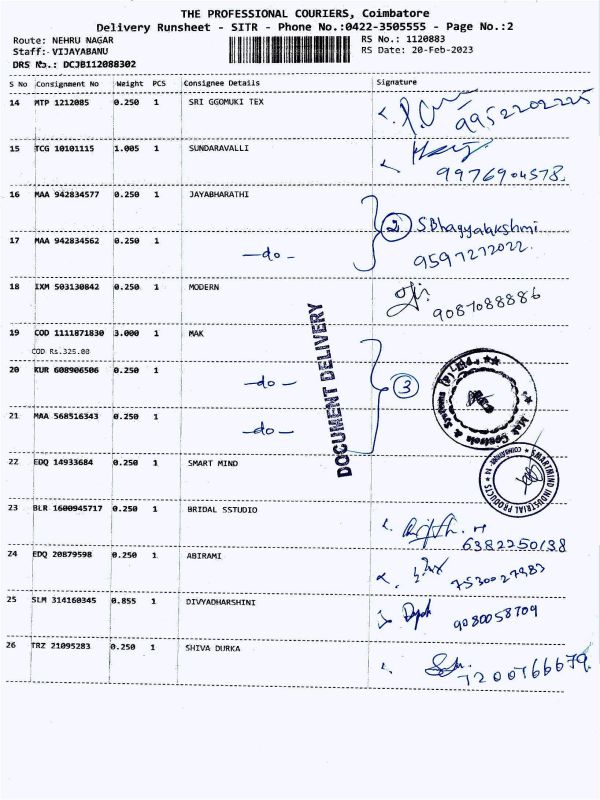 THE PROFESSIONAL COURIERS, Coimbatore
Delivery Runsheet - SITR - Phone No.:0422-3505555 - Page No.:2
Route: NEHRU NAGAR RS No.: 1120883
Staff:- VIJAYABANU RS Date: 20-Feb-2023
DRS No.: DCJB112088302
S No Consignment No Weight PCS Consignee Details Signature
14 MTP 1212085 0.250 1 SRI GGOMUKI TEX
9952202225
15 TCG 10101115 1.005 1 SUNDARAVALLI
9976904578.
16 MAA 942834577 0.250 1 JAYABHARATHI
2 S.Bhagyalakshmi
17 MAA 942834562 0.250 1 -do- 9597272022.
18 IXM 503130842 0.250 1 MODERN
9087088886
19 COD 1111871830 3.000 1 MAK
COD Rs.325.00
20 KUR 608906506 0.250 1 -do- 3
21 MAA 568516343 0.250 1 -do-
DOCUMENT DELIVERY
Mak Controls & Systems (P) Ltd.,
22 EDQ 14933684 0.250 1 SMART MIND
SMARTMIND INDUSTRIAL PRODUCTS
23 BLR 1600945717 0.250 1 BRIDAL SSTUDIO
6382250138
24 EDQ 20879598 0.250 1 ABIRAMI
7530027983
25 SLM 314160345 0.855 1 DIVYADHARSHINI
9080058709
26 TRZ 21095283 0.250 1 SHIVA DURKA
7200766679.